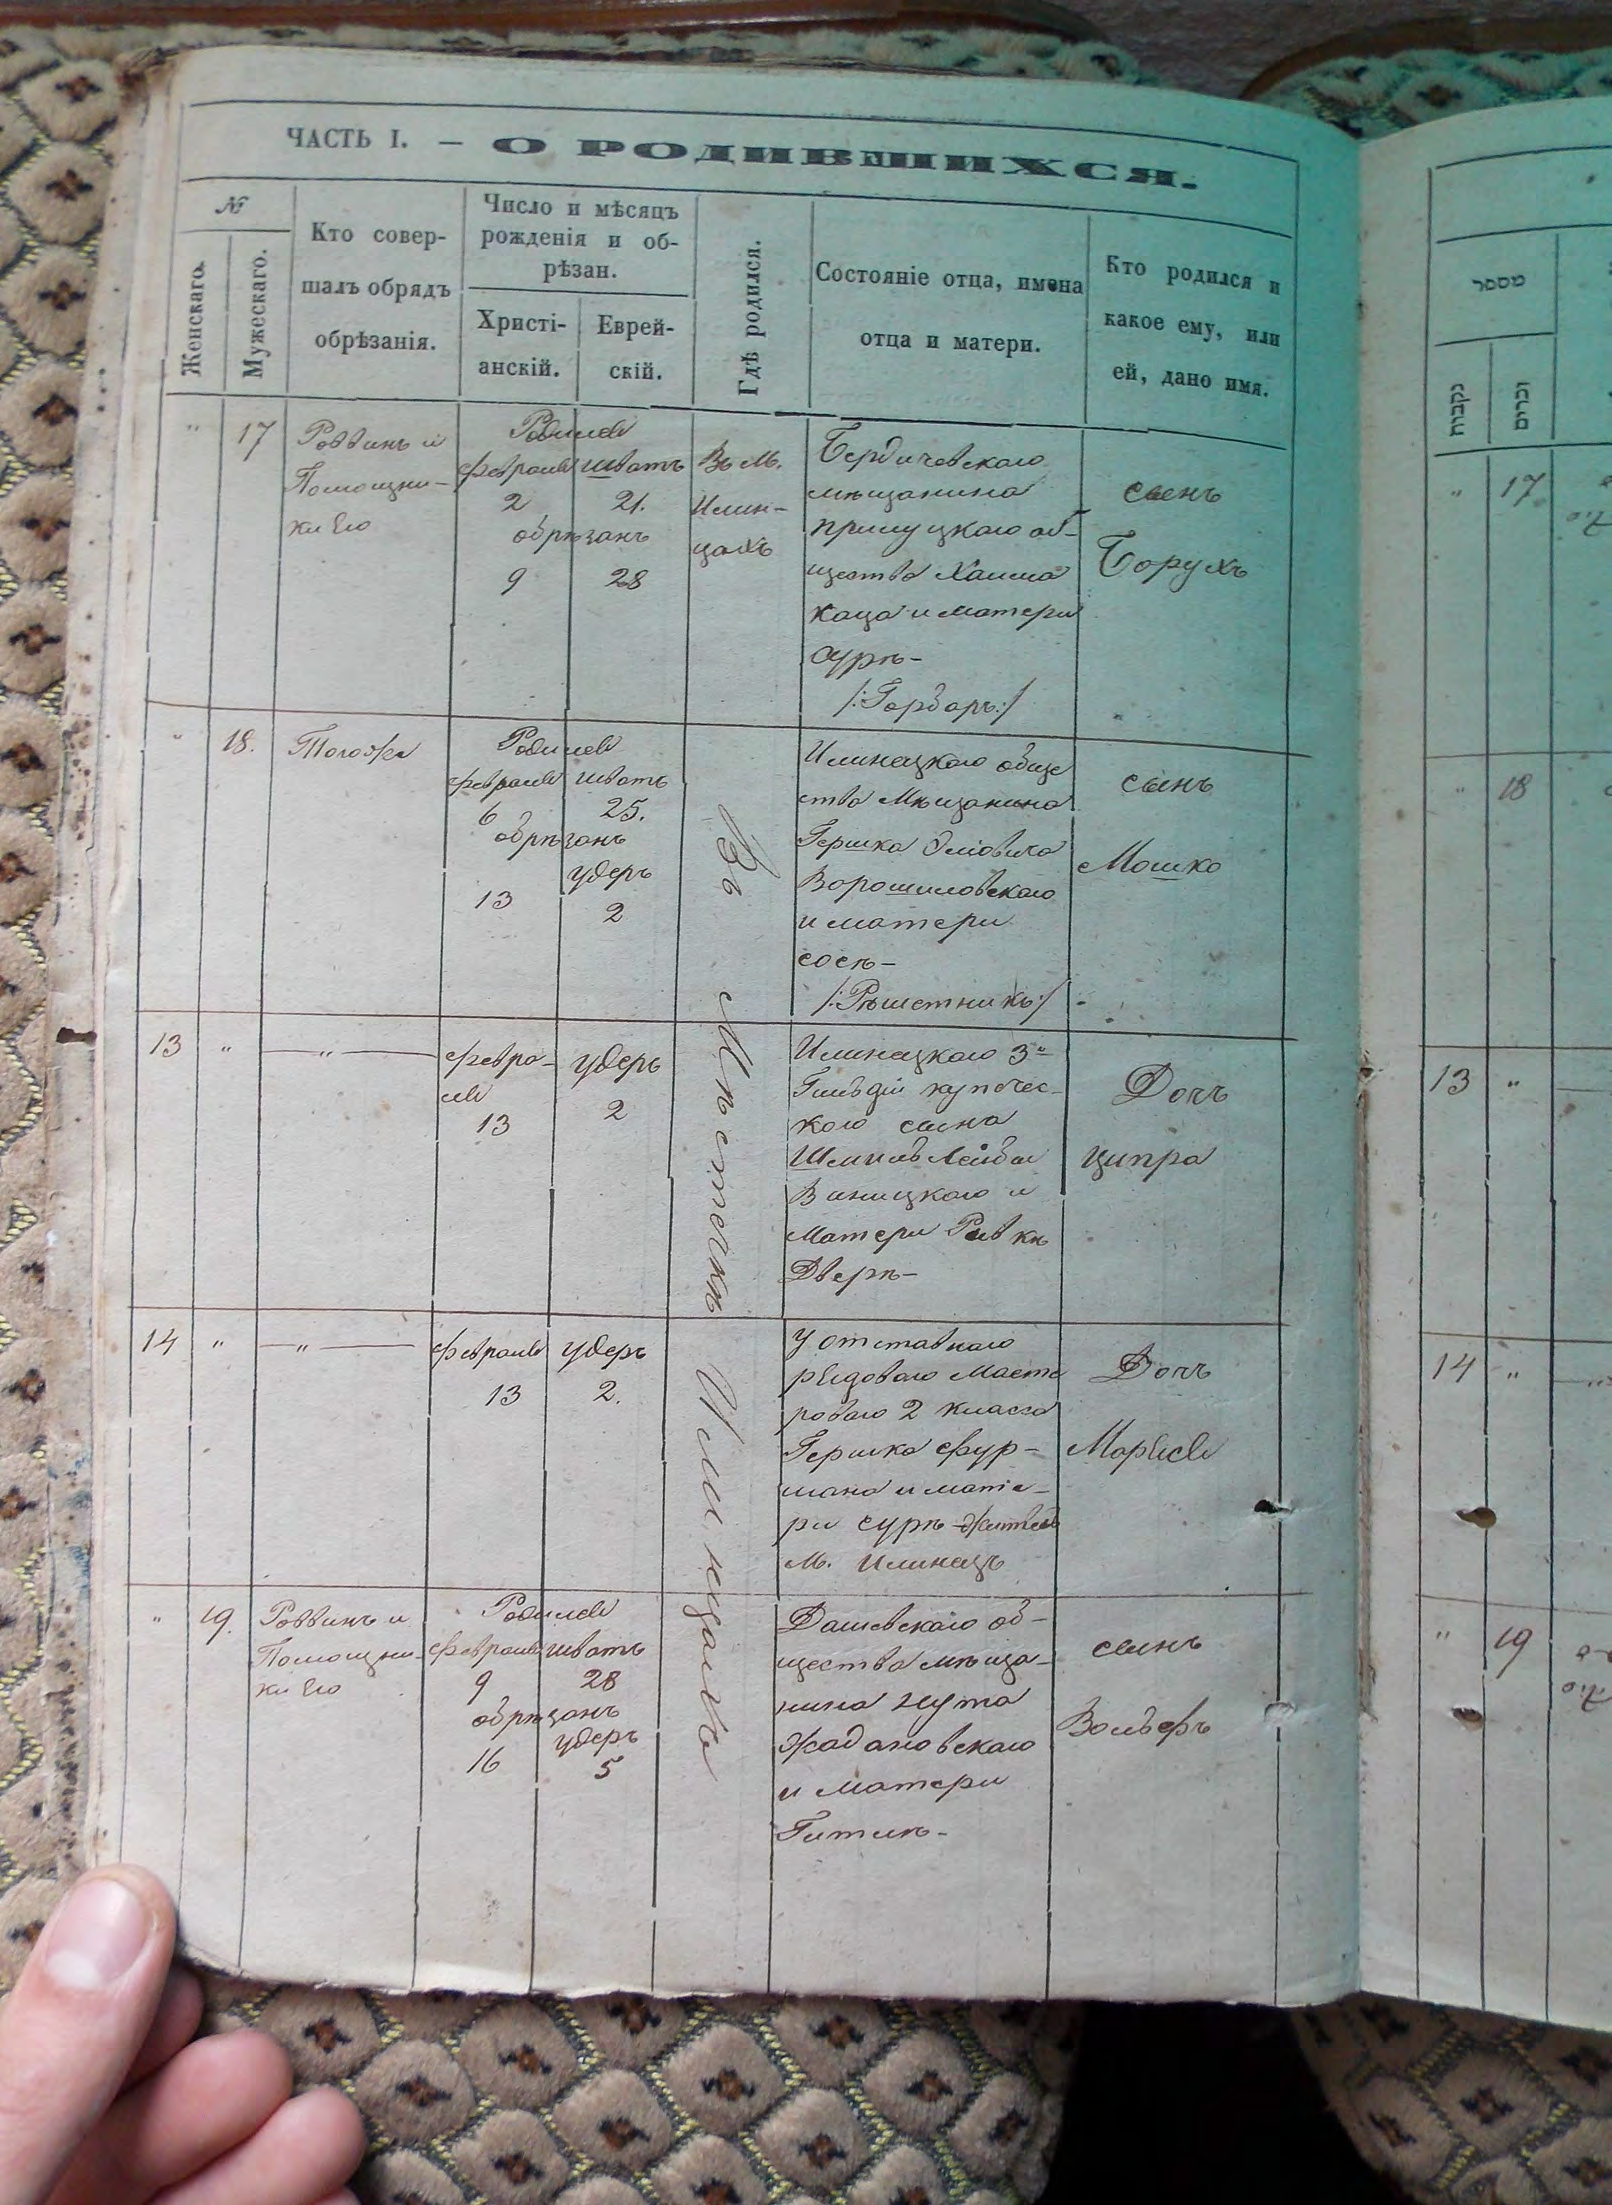 ЧАСТЬ I. — О РОДИВШИХСЯ.
№
Женскаго.
Мужескаго.
Кто совер-
шалъ обрядъ
обрѣзанія.
Число и мѣсяцъ
рожденія и об-
рѣзан.
Христі-
анскій.
Еврей-
скій.
Гдѣ родился.
Состояніе отца, имена
отца и матери.
Кто родился и
какое ему, или
ей, дано имя.
" 17
Раввинъ и
Помощни-
ки Его
Родился
февраля шватъ
2 21.
обрѣзанъ
9 28
Въ М.
Илин-
цахъ
Бердичевскаго
мѣщанина
прилуцкаго об-
щества Хаима
Каца и матери
Суры-
/:Гарбаръ:/
сынъ
Борухъ
" 18.
Тогоже
Родился
февраля шватъ
6 25.
обрѣзанъ
удеръ
13 2
Илинецкаго обще
ства Мѣщанина
Гершка
Ворошиловскаго
и матери
сосѣ-
/:Рѣшетникъ:/
сынъ
Мошко
13 " — " —
февра-
ля
13
удеръ
2
Илинецкаго 3й
Гильдіи купечес-
кого сына
Шмиль Лейбы
Виницкого и
Матери Ривкѣ
Двери-
Дочъ
Ципра
14 " — " —
февраля удеръ
13 2.
У отставнаго
рядоваго Масте
роваго 2 класса
Гершка Фур-
мана и мате-
ри сурѣ жителя
М. Илинецъ
Дочъ
Марыся
" 19.
Раввинъ и
Помощни-
ки Его
Родился
февраля шватъ
9 28
обрѣзанъ
удеръ
16 5
Въ Мѣстечкѣ Илинцахъ
Дашевскаго об-
щества мѣща-
нина Нута
Жадановскаго
и матери
Гитлѣ-
сынъ
Вольфъ
מספר
נקבות
זכרים
" 17
" 18
13 "
14 "
" 19